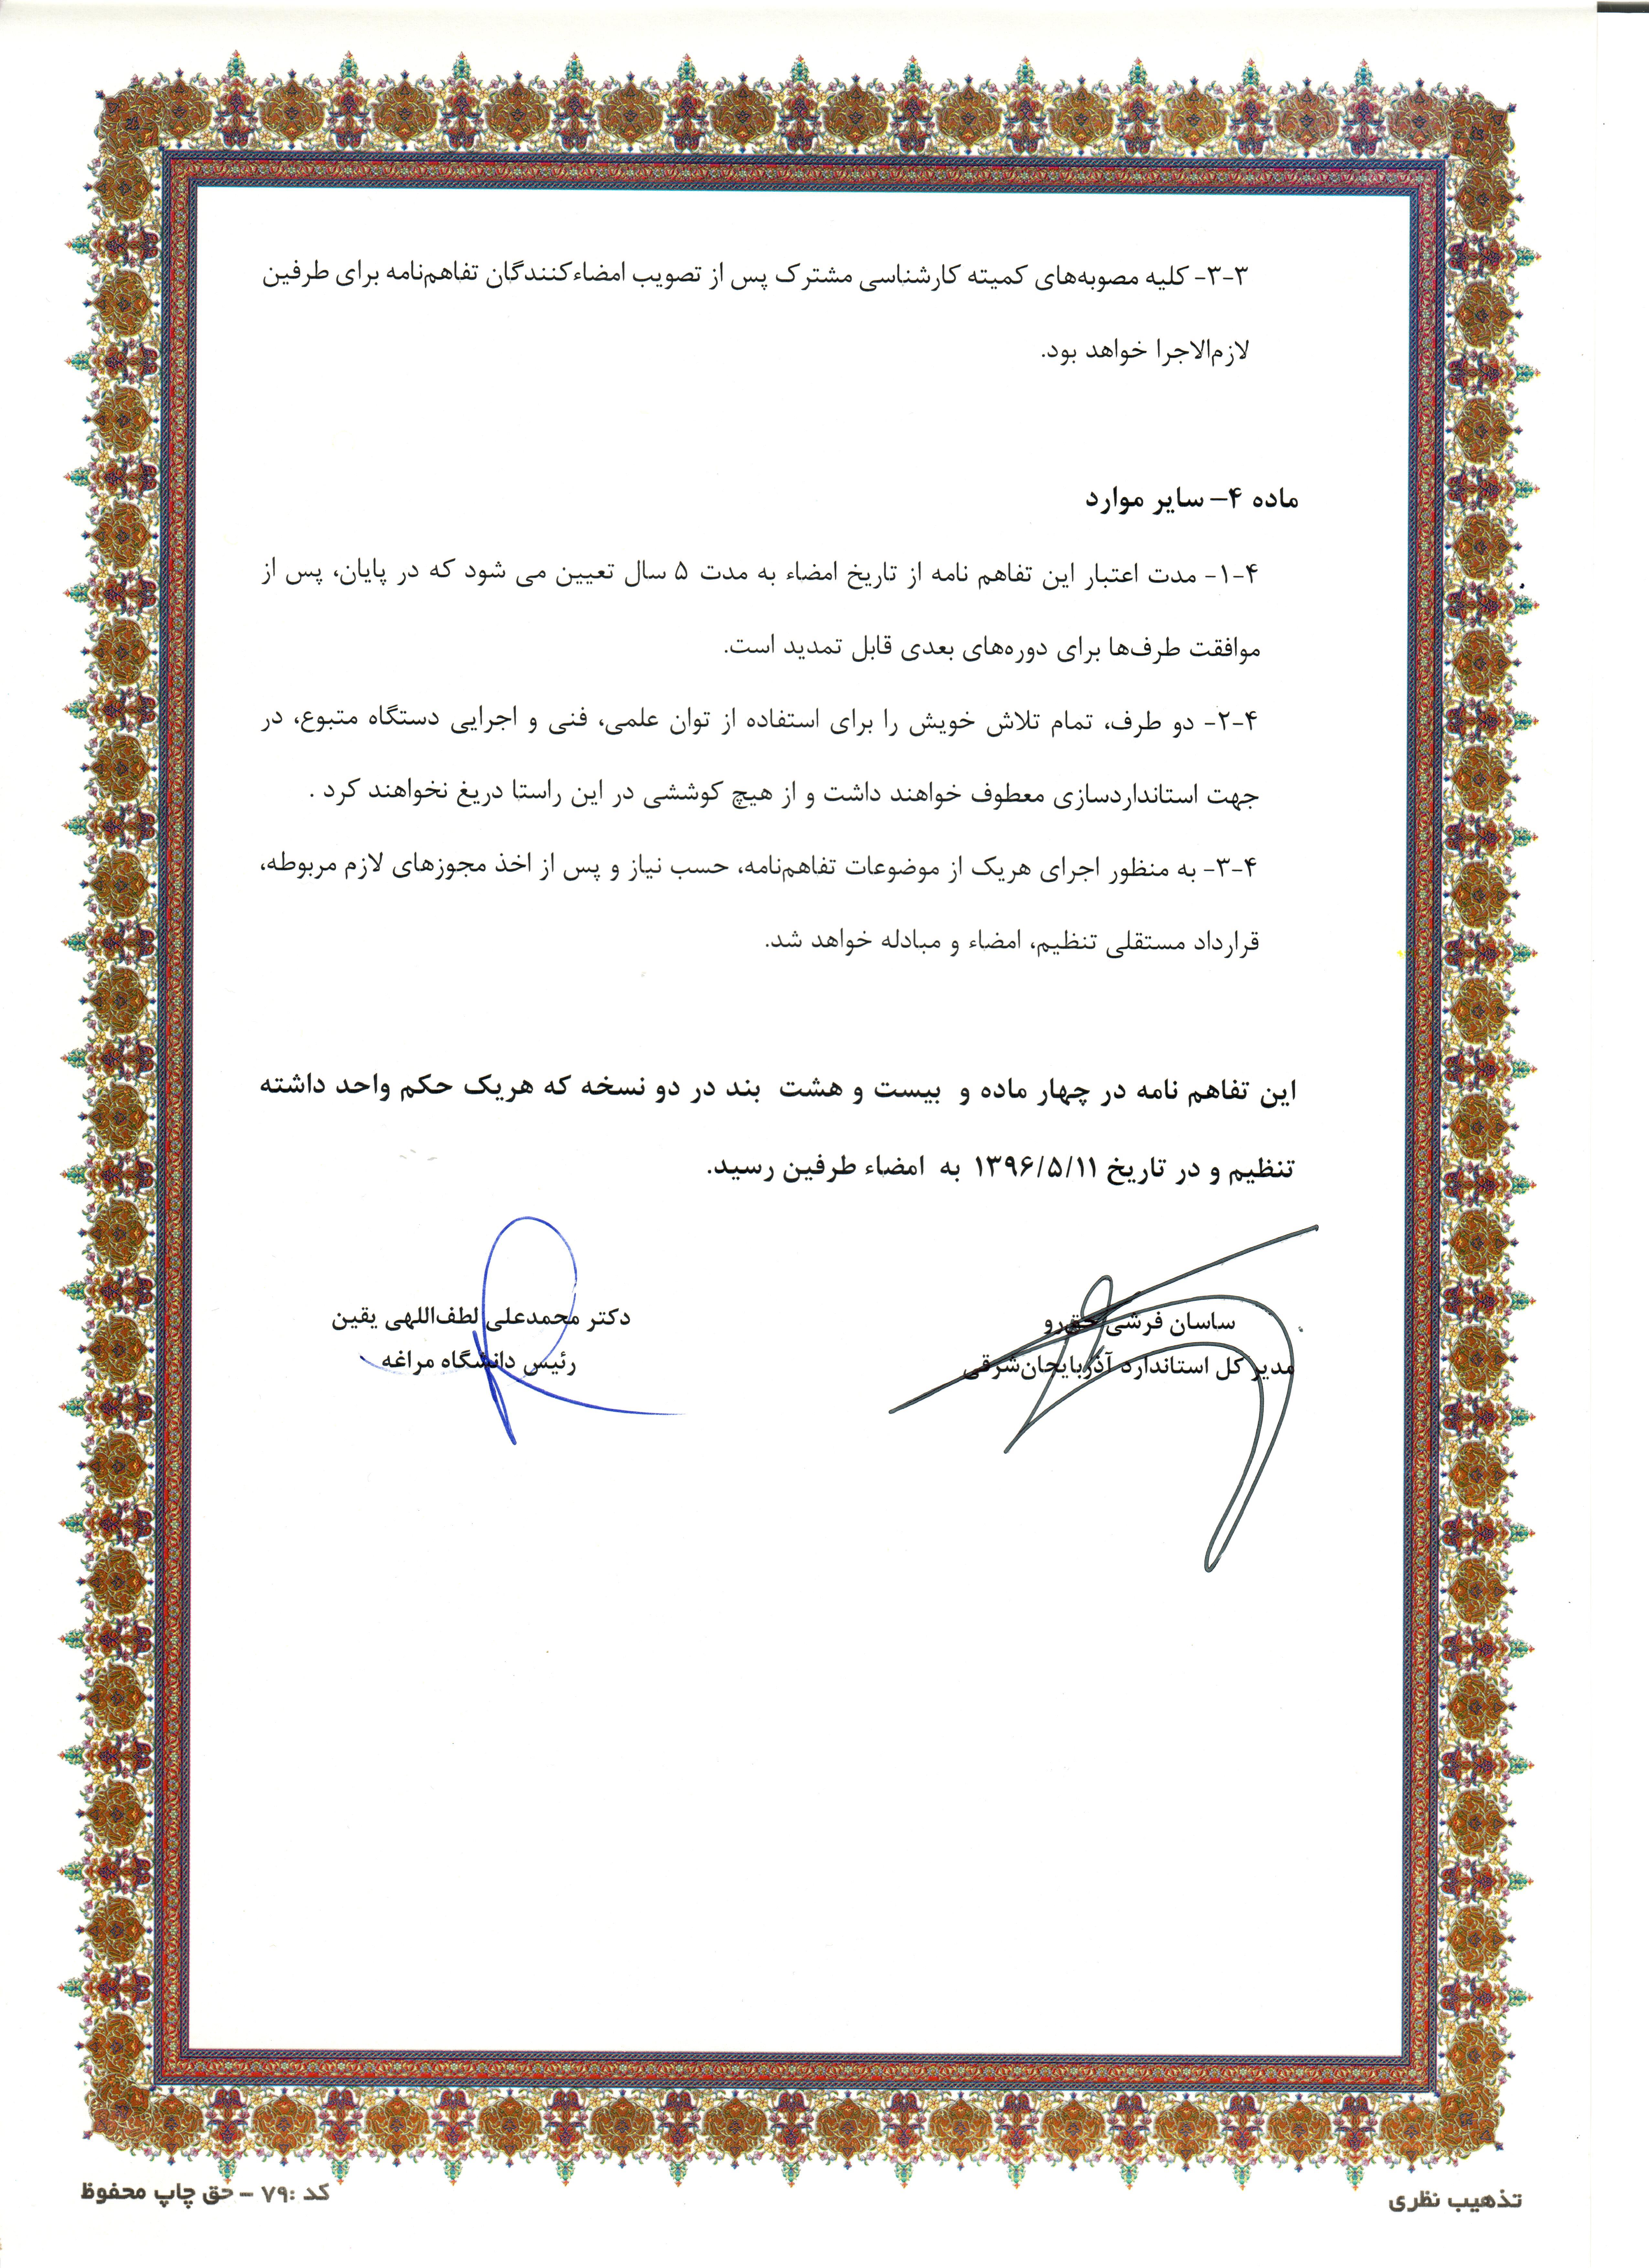 ۳-۳- کلیه مصوبه‌های کمیته کارشناسی مشترک پس از تصویب امضاءکنندگان تفاهم‌نامه برای طرفین
لازم‌الاجرا خواهد بود.
ماده ۴- سایر موارد
۴-۱- مدت اعتبار این تفاهم نامه از تاریخ امضاء به مدت ۵ سال تعیین می شود که در پایان، پس از
موافقت طرف‌ها برای دوره‌های بعدی قابل تمدید است.
۴-۲- دو طرف، تمام تلاش خویش را برای استفاده از توان علمی، فنی و اجرایی دستگاه متبوع، در
جهت استانداردسازی معطوف خواهند داشت و از هیچ کوششی در این راستا دریغ نخواهند کرد .
۴-۳- به منظور اجرای هریک از موضوعات تفاهم‌نامه، حسب نیاز و پس از اخذ مجوزهای لازم مربوطه،
قرارداد مستقلی تنظیم، امضاء و مبادله خواهد شد.
این تفاهم نامه در چهار ماده و بیست و هشت بند در دو نسخه که هریک حکم واحد داشته
تنظیم و در تاریخ ۱۳۹۶/۵/۱۱ به امضاء طرفین رسید.
ساسان فرشی حق‌رو
مدیر کل استاندارد آذربایجان‌شرقی
دکتر محمدعلی لطف‌اللهی یقین
رئیس دانشگاه مراغه
تذهیب نظری
کد :۷۹ - حق چاپ محفوظ